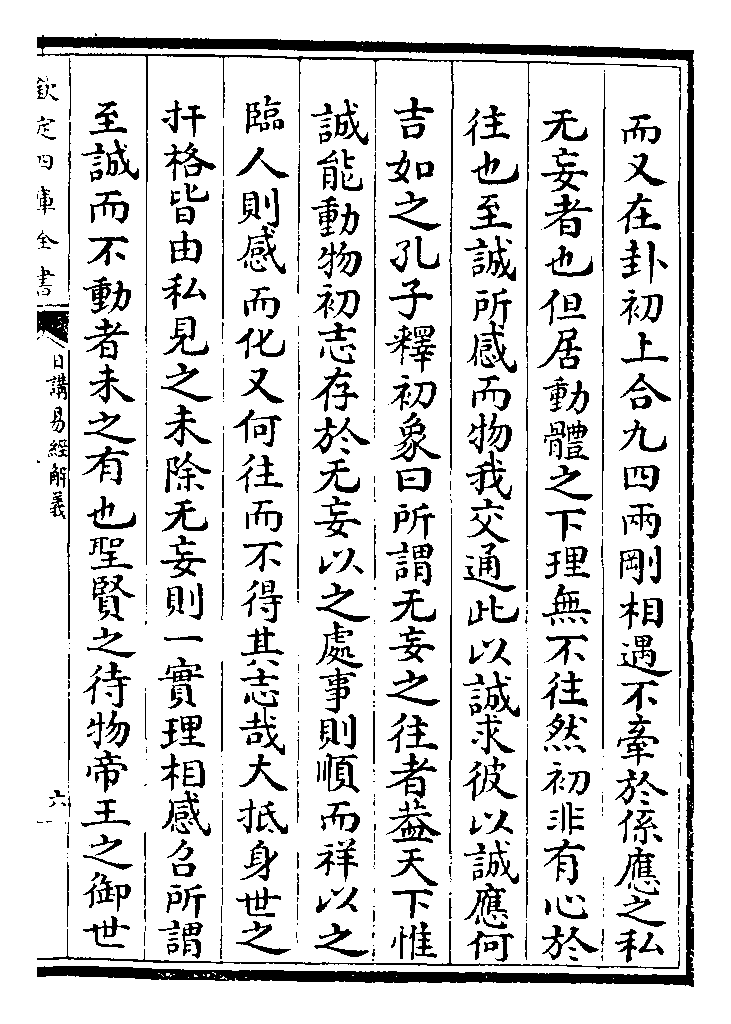 而又在卦初上合九四兩剛相遇不牽於係應之私
无妄者也但居動體之下理無不往然初非有心於
往也至誠所感而物我交通此以誠求彼以誠應何
吉如之孔子釋初象曰所謂无妄之往者葢天下惟
誠能動物初志存於无妄以之處事則順而祥以之
臨人則感而化又何往而不得其志哉大抵身世之
扞格皆由私見之未除无妄則一實理相感召所謂
至誠而不動者未之有也聖賢之待物帝王之御世
欽定四庫全書
日講易經解義
六